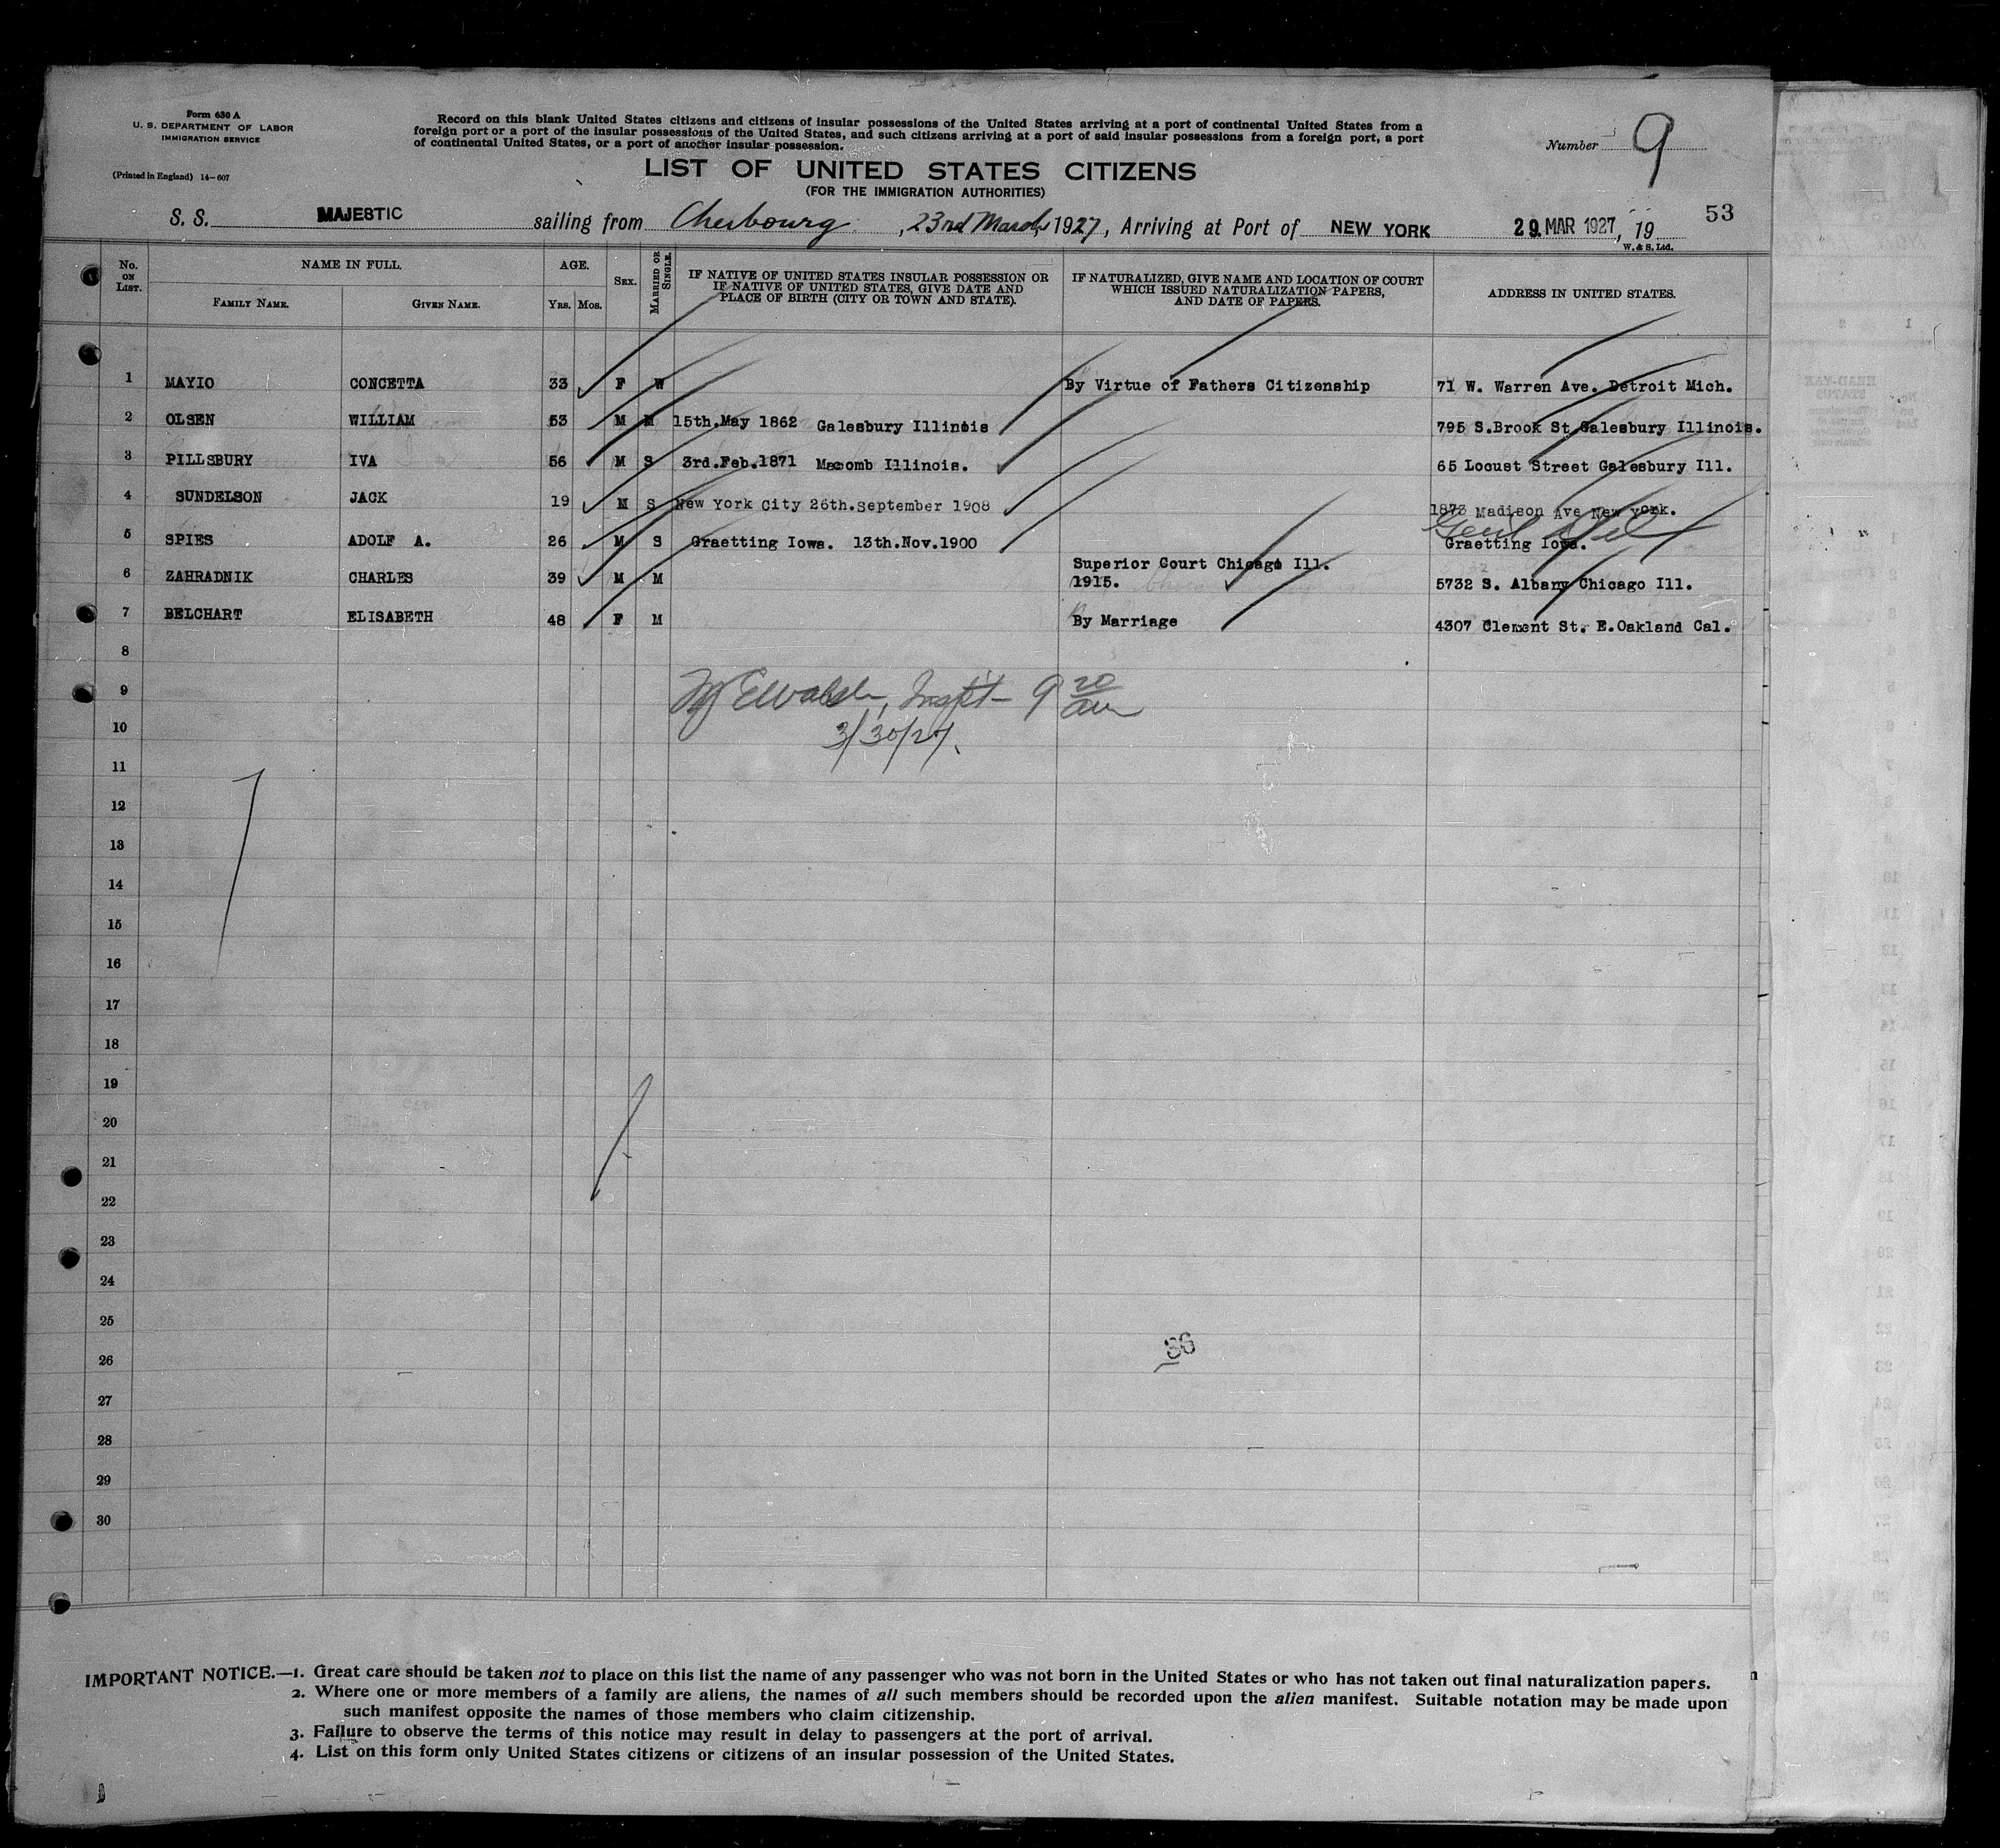 Form 630 A
U. S. DEPARTMENT OF LABOR
IMMIGRATION SERVICE
(Printed in England) 14-607
Record on this blank United States citizens and citizens of insular possessions of the United States arriving at a port of continental United States from a
foreign port or a port of the insular possessions of the United States, and such citizens arriving at a port of said insular possessions from a foreign port, a port
of continental United States, or a port of another insular possession.
Number 9
LIST OF UNITED STATES CITIZENS
(FOR THE IMMIGRATION AUTHORITIES)
53
S. S. MAJESTIC sailing from Cherbourg, 23rd March 1927, Arriving at Port of NEW YORK 29 MAR 1927, 19
W. & S. Ltd.
No. ON LIST. NAME IN FULL. AGE. SEX. MARRIED OR SINGLE. IF NATIVE OF UNITED STATES INSULAR POSSESSION OR IF NATIVE OF UNITED STATES, GIVE DATE AND PLACE OF BIRTH (CITY OR TOWN AND STATE). IF NATURALIZED, GIVE NAME AND LOCATION OF COURT WHICH ISSUED NATURALIZATION PAPERS, AND DATE OF PAPERS. ADDRESS IN UNITED STATES.
FAMILY NAME. GIVEN NAME. Yrs. Mos.
1 MAYIO CONCETTA 33 F W By Virtue of Fathers Citizenship 71 W. Warren Ave. Detroit Mich.
2 OLSEN WILLIAM 53 M M 15th.May 1862 Galesbury Illinois 795 S.Brook St Galesbury Illinois.
3 PILLSBURY IVA 56 M S 3rd.Feb.1871 Macomb Illinois. 65 Locust Street Galesbury Ill.
4 SUNDELSON JACK 19 M S New York City 26th.September 1908 1873 Madison Ave New York.
5 SPIES ADOLF A. 26 M S Graetting Iowa. 13th.Nov.1900 Graetting Iowa.
6 ZAHRADNIK CHARLES 39 M M Superior Court Chicago Ill.
1915. 5732 S. Albany Chicago Ill.
7 BELCHART ELISABETH 48 F M By Marriage 4307 Clement St. E.Oakland Cal.
8
9 Walsh, Inspt- 9 20 am
10 3/30/27.
11
12
13
14
15
16
17
18
19
20
21
22
23
24
25
26 36
27
28
29
30
IMPORTANT NOTICE.—1. Great care should be taken not to place on this list the name of any passenger who was not born in the United States or who has not taken out final naturalization papers.
2. Where one or more members of a family are aliens, the names of all such members should be recorded upon the alien manifest. Suitable notation may be made upon
such manifest opposite the names of those members who claim citizenship.
3. Failure to observe the terms of this notice may result in delay to passengers at the port of arrival.
4. List on this form only United States citizens or citizens of an insular possession of the United States.